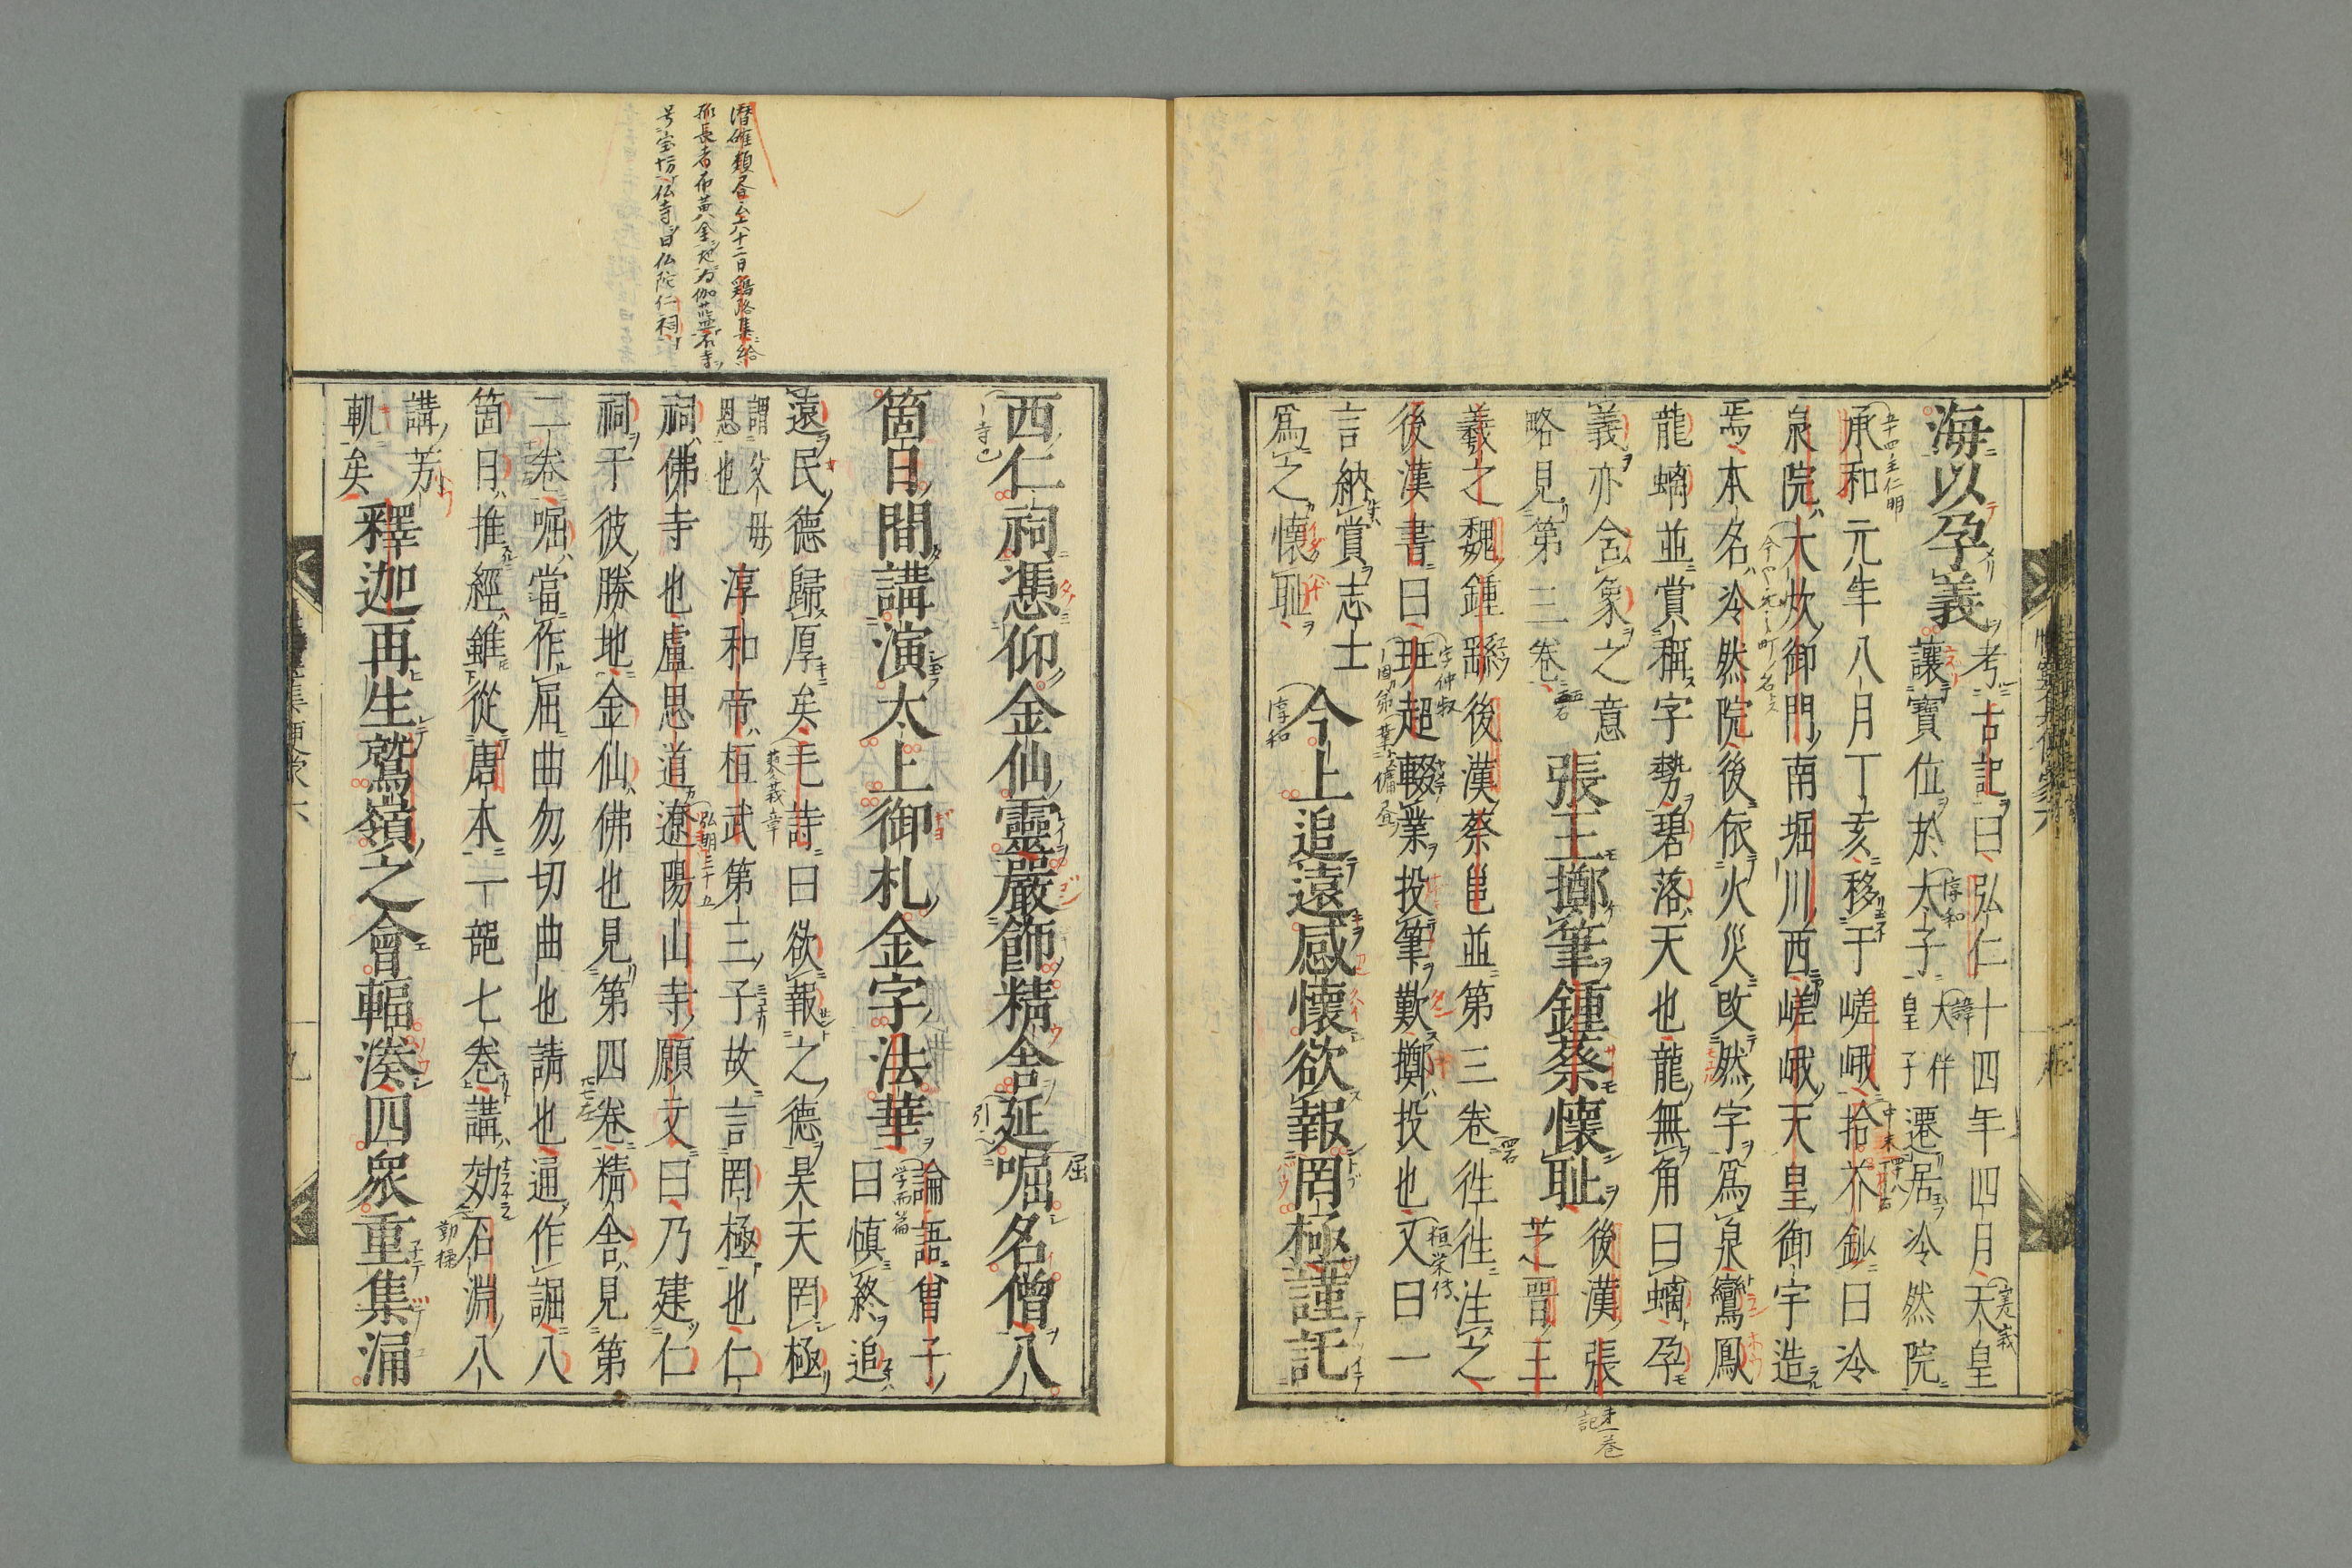 海以孕義考古記曰弘仁十四年四月天皇
讓寶位於太子大伴皇子遷居冷然院
承和元年八月丁亥移于嵯峨拾芥鈔曰冷
泉院大炊御門南堀川西嵯峨天皇御宇造
焉本名冷然院後依火災改然字爲泉鸞鳳
龍螭並賞稱字勢碧落天也龍無角曰螭孕
義亦含象之意
略見第三卷
張王擲筆鍾蔡懷耻
後漢張
芝晉王
羲之魏鍾繇後漢蔡邕並第三卷往往注之
後漢書曰班超輟業投筆歎擲投也又曰一
言納賞志士
爲之懷耻
今上追遠感懷欲報罔極謹託
西仁祠憑仰金仙靈嚴飾精舍延崛名僧八
箇日間講演太上御札金字法華
論語曾子
曰慎終追
遠民德歸厚矣毛詩曰欲報之德昊天罔極
謂父母
恩也
淳和帝桓武第三子故言罔極也仁
祠佛寺也盧思道遼陽山寺願文曰乃建仁
祠于彼勝地金仙佛也見第四卷精舍見第
二卷崛當作屈曲勿切曲也請也通作詘八
箇日推經雖從唐本一部七卷講効石淵八
講芳
軌矣
釋迦再生鷲嶺之會輻湊四衆重集漏
五十四主仁明
淳和
諱
字仲叔
淳和
屈
学而篇
蓼莪章
号宝坊仏寺曰仏陀仁祠